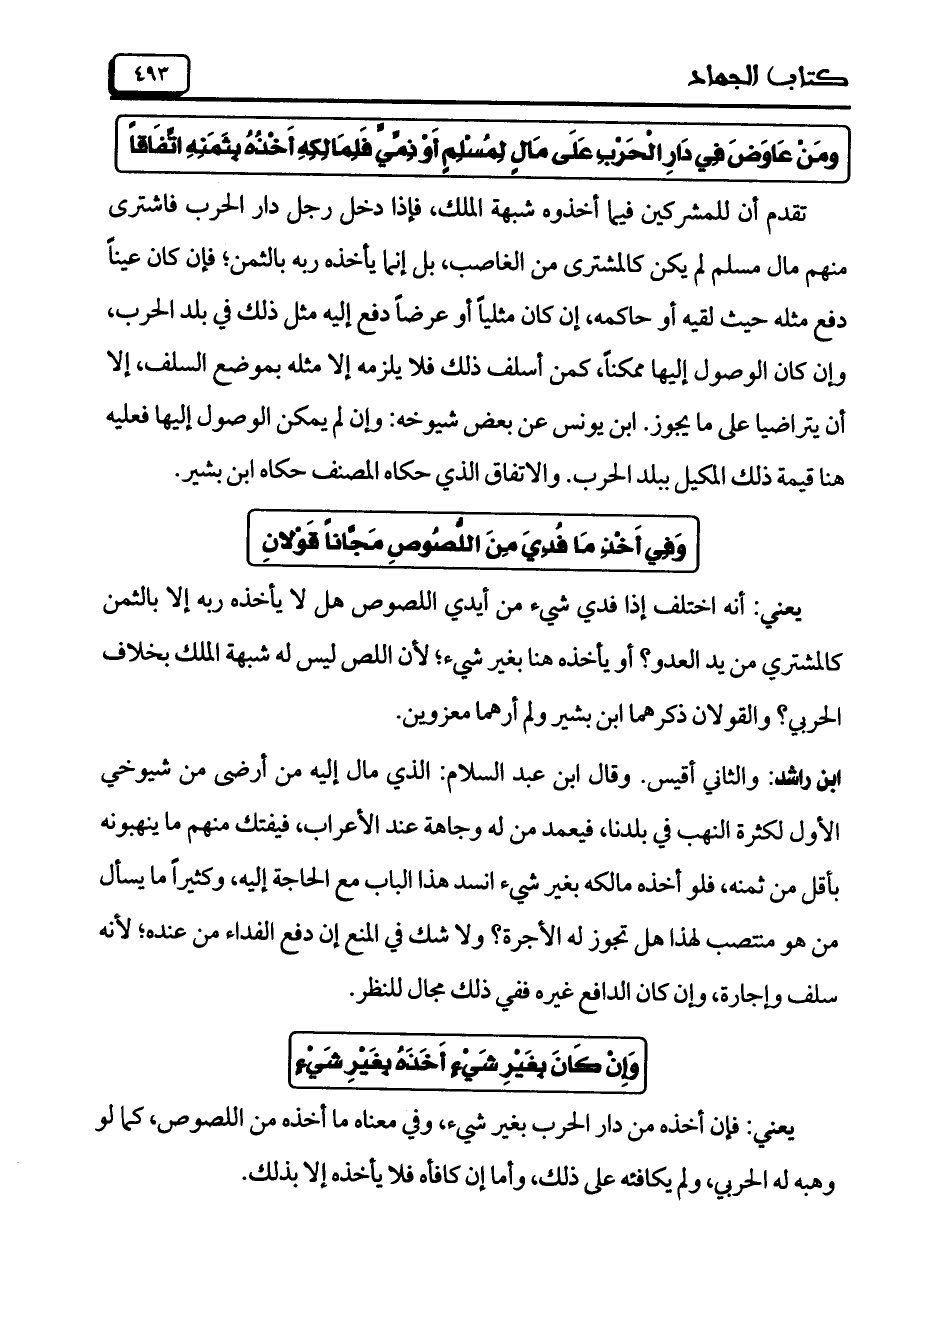 كتاب الجهاد
٤٩٣
ومَنْ عَاوَضَ فِي دَارِ الْحَرْبِ عَلَى مَالٍ لِمُسْلِمٍ أَوْ ذِمِّيٍّ فَلِمَالِكِهِ أَخْذُهُ بِثَمَنِهِ اتِّفَاقاً
تقدم أن للمشركين فيما أخذوه شبهة الملك، فإذا دخل رجل دار الحرب فاشترى
منهم مال مسلم لم يكن كالمشترى من الغاصب، بل إنما يأخذه ربه بالثمن؛ فإن كان عيناً
دفع مثله حيث لقيه أو حاكمه، إن كان مثلياً أو عرضاً دفع إليه مثل ذلك في بلد الحرب،
وإن كان الوصول إليها ممكناً، كمن أسلف ذلك فلا يلزمه إلا مثله بموضع السلف، إلا
أن يتراضيا على ما يجوز. ابن يونس عن بعض شيوخه: وإن لم يمكن الوصول إليها فعليه
هنا قيمة ذلك المكيل ببلد الحرب. والاتفاق الذي حكاه المصنف حكاه ابن بشير.
وَفِي أَخْذِ مَا فُدِيَ مِنَ اللُّصُوصِ مَجَّاناً قَوْلانِ
يعني: أنه اختلف إذا فدي شيء من أيدي اللصوص هل لا يأخذه ربه إلا بالثمن
كالمشتري من يد العدو؟ أو يأخذه هنا بغير شيء؛ لأن اللص ليس له شبهة الملك بخلاف
الحربي؟ والقولان ذكرهما ابن بشير ولم أرهما معزوين.
ابن راشد: والثاني أقيس. وقال ابن عبد السلام: الذي مال إليه من أرضى من شيوخي
الأول لكثرة النهب في بلدنا، فيعمد من له وجاهة عند الأعراب، فيفتك منهم ما ينهبونه
بأقل من ثمنه، فلو أخذه مالكه بغير شيء انسد هذا الباب مع الحاجة إليه، وكثيراً ما يسأل
من هو منتصب لهذا هل تجوز له الأجرة؟ ولا شك في المنع إن دفع الفداء من عنده؛ لأنه
سلف وإجارة، وإن كان الدافع غيره ففي ذلك مجال للنظر.
وَإِنْ كَانَ بِغَيْرِ شَيْءٍ أَخَذَهُ بِغَيْرِ شَيْءٍ
يعني: فإن أخذه من دار الحرب بغير شيء، وفي معناه ما أخذه من اللصوص، كما لو
وهبه له الحربي، ولم يكافئه على ذلك، وأما إن كافأه فلا يأخذه إلا بذلك.